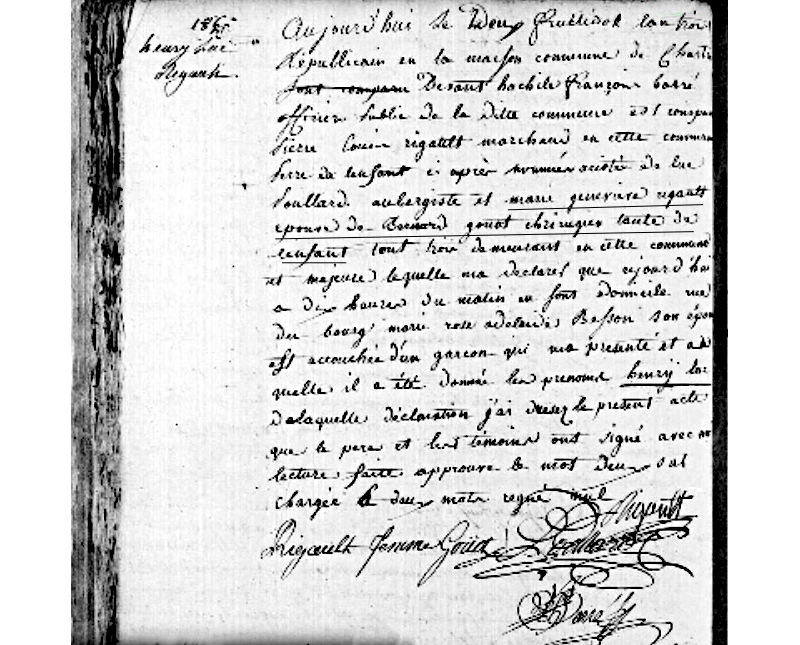 186
henry luc
Rigault
Aujourd'hui le deux fructidor l'an trois
Républicain en la maison commune de Chart
sont comparu Devant hachile françois barré
officier public de la ditte commune est compar
Pierre Louis rigault marchand en cette commune
Perre de lenfant ci après nommée assisté de luc
Soullard aubergiste et marie genevieve rigault
epouse de Bernard gouot chirurgien tante de
lenfant tout trois demeurant en cette commune
et majeure lequelle ma declaree que cejourd'hui
a dix heures du matin en sont domicile rue
du bourg marie rose adelaide Besson son épou
est accouchée d'un garçon qui ma présenté et au
quelle il a été donnée les prenoms henry luc
delaquelle déclaration j'ai dressez le present acte
que le pere et les témoins ont signé avec m
lecture faitte approuve le mot deux sur
chargée deux mots regné nul
Rigault
Rigault femme Gouot
Barré